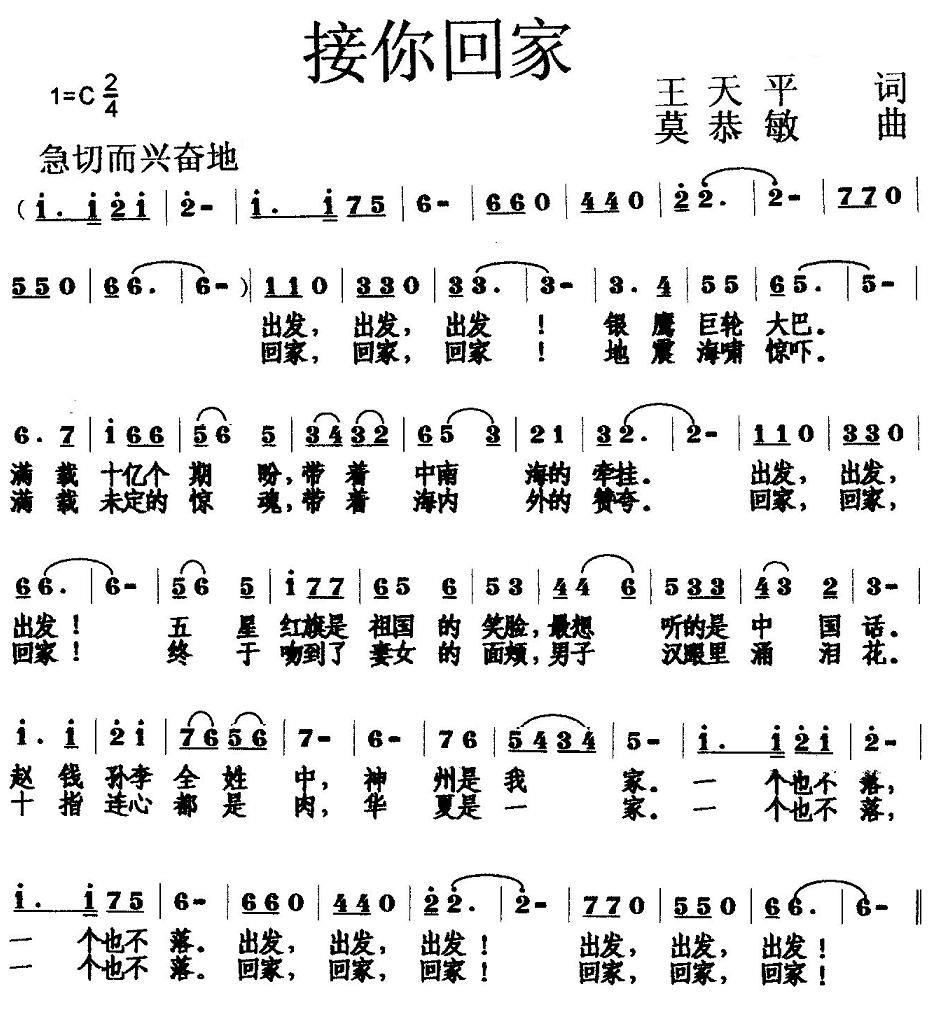 接你回家
1=C 2/4
王天平 词
莫恭敏 曲
急切而兴奋地
( i. i 2 i | 2 - | i. i 7 5 | 6 - | 6 6 0 | 4 4 0 | 2 2. | 2 - | 7 7 0 |
5 5 0 | 6 6. | 6 - ) | 1 1 0 | 3 3 0 | 3 3. | 3 - | 3. 4 | 5 5 | 6 5. | 5 - |
出发， 出发， 出发 ！ 银 鹰 巨轮 大巴。
回家， 回家， 回家 ！ 地 震 海啸 惊吓。
6. 7 | i 6 6 | 5 6 5 | 3 4 3 2 | 6 5 3 | 2 1 | 3 2. | 2 - | 1 1 0 | 3 3 0 |
满 载 十亿个 期 盼，带 着 中南 海的 牵挂。 出发， 出发，
满 载 未定的 惊 魂，带 着 海内 外的 赞夸。 回家， 回家，
6 6. | 6 - | 5 6 5 | i 7 7 | 6 5 6 | 5 3 | 4 4 6 | 5 3 3 | 4 3 2 | 3 - |
出发！ 五 星 红旗是 祖国 的 笑脸，最想 听的是 中 国 话。
回家！ 终 于 吻到了 妻女 的 面颊，男子 汉眼里 涌 泪 花。
i. i | 2 i | 7 6 5 6 | 7 - | 6 - | 7 6 | 5 4 3 4 | 5 - | i. i 2 i | 2 - |
赵 钱 孙李 全 姓 中，神 州是 我 家。 一 个也不 落，
十 指 连心 都 是 肉，华 夏是 一 家。 一 个也不 落，
i. i 7 5 | 6 - | 6 6 0 | 4 4 0 | 2 2. | 2 - | 7 7 0 | 5 5 0 | 6 6. | 6 - ‖
一 个也不 落。 出发， 出发， 出发！ 出发， 出发， 出发！
一 个也不 落。 回家， 回家， 回家！ 回家， 回家， 回家！